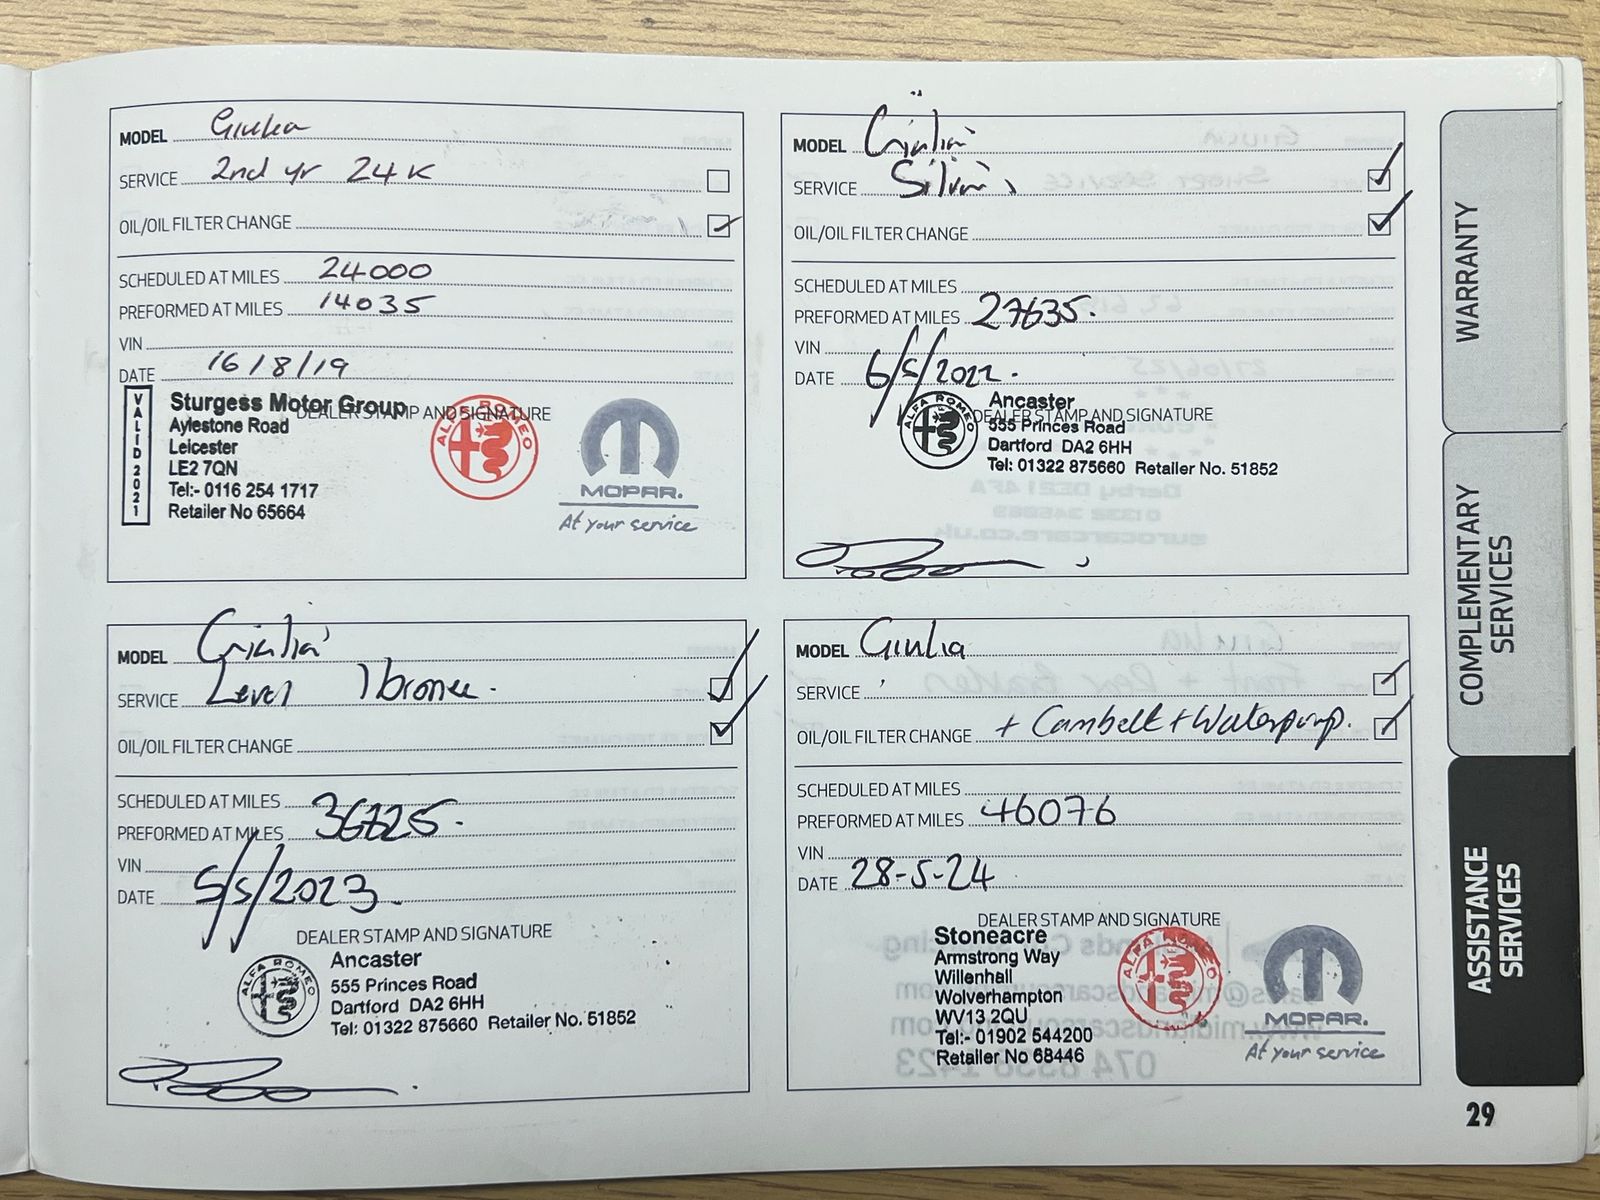 MODEL Giulia
SERVICE 2nd yr 24K
OIL/OIL FILTER CHANGE
SCHEDULED AT MILES 24000
PREFORMED AT MILES 14035
VIN
DATE 16/8/19
DEALER STAMP AND SIGNATURE
VALID 2021
Sturgess Motor Group
Aylestone Road
Leicester
LE2 7QN
Tel:- 0116 254 1717
Retailer No 65664
ALFA ROMEO
MOPAR.
At your service
MODEL Giulia
SERVICE Silver
OIL/OIL FILTER CHANGE
SCHEDULED AT MILES
PREFORMED AT MILES 27635.
VIN
DATE 6/5/2022.
DEALER STAMP AND SIGNATURE
ALFA ROMEO
Ancaster
555 Princes Road
Dartford DA2 6HH
Tel: 01322 875660 Retailer No. 51852
MODEL Giulia
SERVICE Level 1 bronze.
OIL/OIL FILTER CHANGE
SCHEDULED AT MILES
PREFORMED AT MILES
VIN
DATE 5/5/2023.
DEALER STAMP AND SIGNATURE
ALFA ROMEO
Ancaster
555 Princes Road
Dartford DA2 6HH
Tel: 01322 875660 Retailer No. 51852
MODEL Giulia
SERVICE
OIL/OIL FILTER CHANGE + Cambelt + Waterpump.
SCHEDULED AT MILES
PREFORMED AT MILES 46076
VIN
DATE 28-5-24
DEALER STAMP AND SIGNATURE
Stoneacre
Armstrong Way
Willenhall
Wolverhampton
WV13 2QU
Tel:- 01902 544200
Retailer No 68446
ALFA ROMEO
MOPAR.
At your service
WARRANTY
COMPLEMENTARY
SERVICES
ASSISTANCE
SERVICES
29